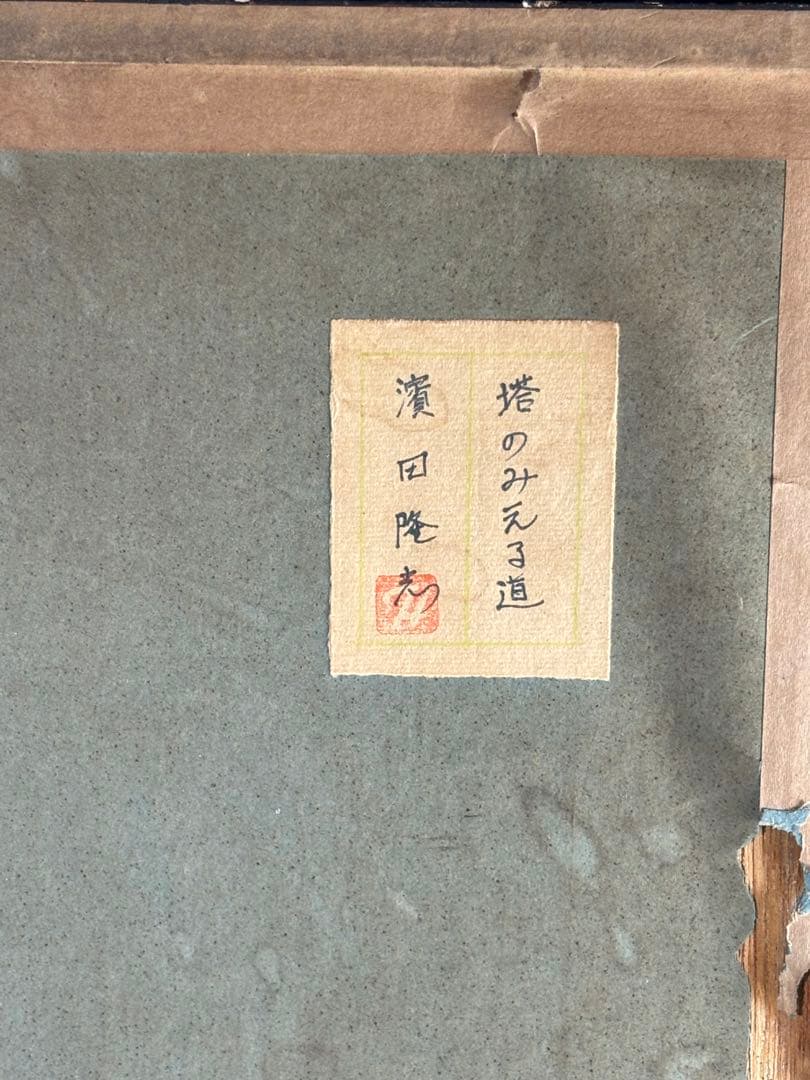 塔のみえる道
濱田隆志